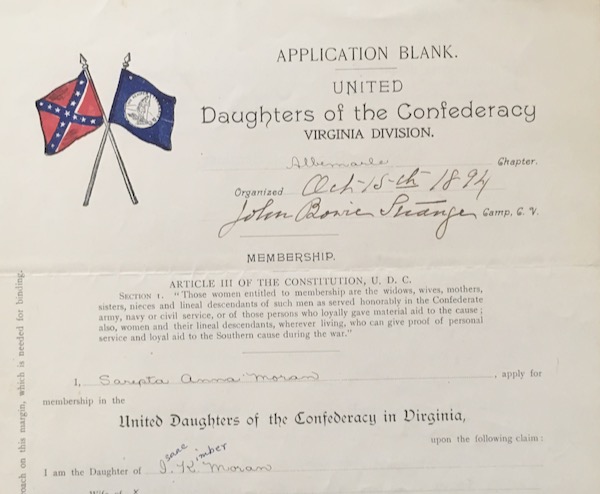 APPLICATION BLANK.
UNITED
Daughters of the Confederacy
VIRGINIA DIVISION.
Albemarle Chapter.
Organized Oct-15-th 1894
John Bowie Strange Camp, C. V.
MEMBERSHIP.
ARTICLE III OF THE CONSTITUTION, U. D. C.
SECTION 1. "Those women entitled to membership are the widows, wives, mothers,
sisters, nieces and lineal descendants of such men as served honorably in the Confederate
army, navy or civil service, or of those persons who loyally gave material aid to the cause;
also, women and their lineal descendants, wherever living, who can give proof of personal
service and loyal aid to the Southern cause during the war."
I, Sarepta Anna Moran, apply for
membership in the
United Daughters of the Confederacy in Virginia,
upon the following claim:
saac imber
I am the Daughter of I. K. Moran
Wife of X
roach on this margin, which is needed for binding.